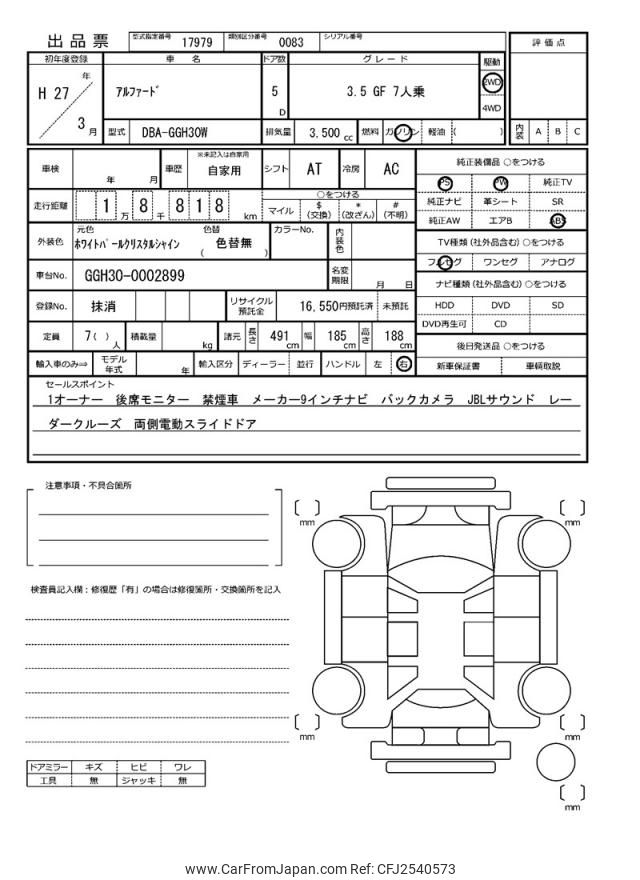 出品票 型式指定番号 17979 類別区分番号 0083 シリアル番号
評価点
初年度登録 車名 ドア数 グレード 駆動
H 27 年 3 月
アルファード 5 D 3.5 GF 7人乗 2WD 4WD
型式 DBA-GGH30W 排気量 3,500 cc 燃料 ガソリン 軽油 ( )
内装 A B C
車検 年 月 車歴 ※未記入は自家用 自家用 シフト AT 冷房 AC
走行距離 1 万 8 千 8 1 8 km
○をつける
マイル $ (交換) * (改ざん) # (不明)
外装色 元色 ホワイトパールクリスタルシャイン 色替 ( 色替無 ) カラーNo. 内装色
車台No. GGH30-0002899 名変期限 月 日
登録No. 抹消 リサイクル預託金 16,550円預託済 未預託
定員 7( )人 積載量 kg 諸元 長さ 491 cm 幅 185 cm 高さ 188 cm
輸入車のみ⇒ モデル年式 年 輸入区分 ディーラー 並行 ハンドル 左 右
純正装備品 ○をつける
PS PW 純正TV
純正ナビ 革シート SR
純正AW エアB ABS
TV種類 (社外品含む) ○をつける
フルセグ ワンセグ アナログ
ナビ種類 (社外品含む) ○をつける
HDD DVD SD
DVD再生可 CD
後日発送品 ○をつける
新車保証書 車輌取説
セールスポイント
1オーナー 後席モニター 禁煙車 メーカー9インチナビ バックカメラ JBLサウンド レー
ダークルーズ 両側電動スライドドア
注意事項・不具合箇所
検査員記入欄：修復歴「有」の場合は修復箇所・交換箇所を記入
mm
mm
mm
mm
mm
ドアミラー キズ ヒビ ワレ
工具 無 ジャッキ 無
www.CarFromJapan.com Ref: CFJ2540573